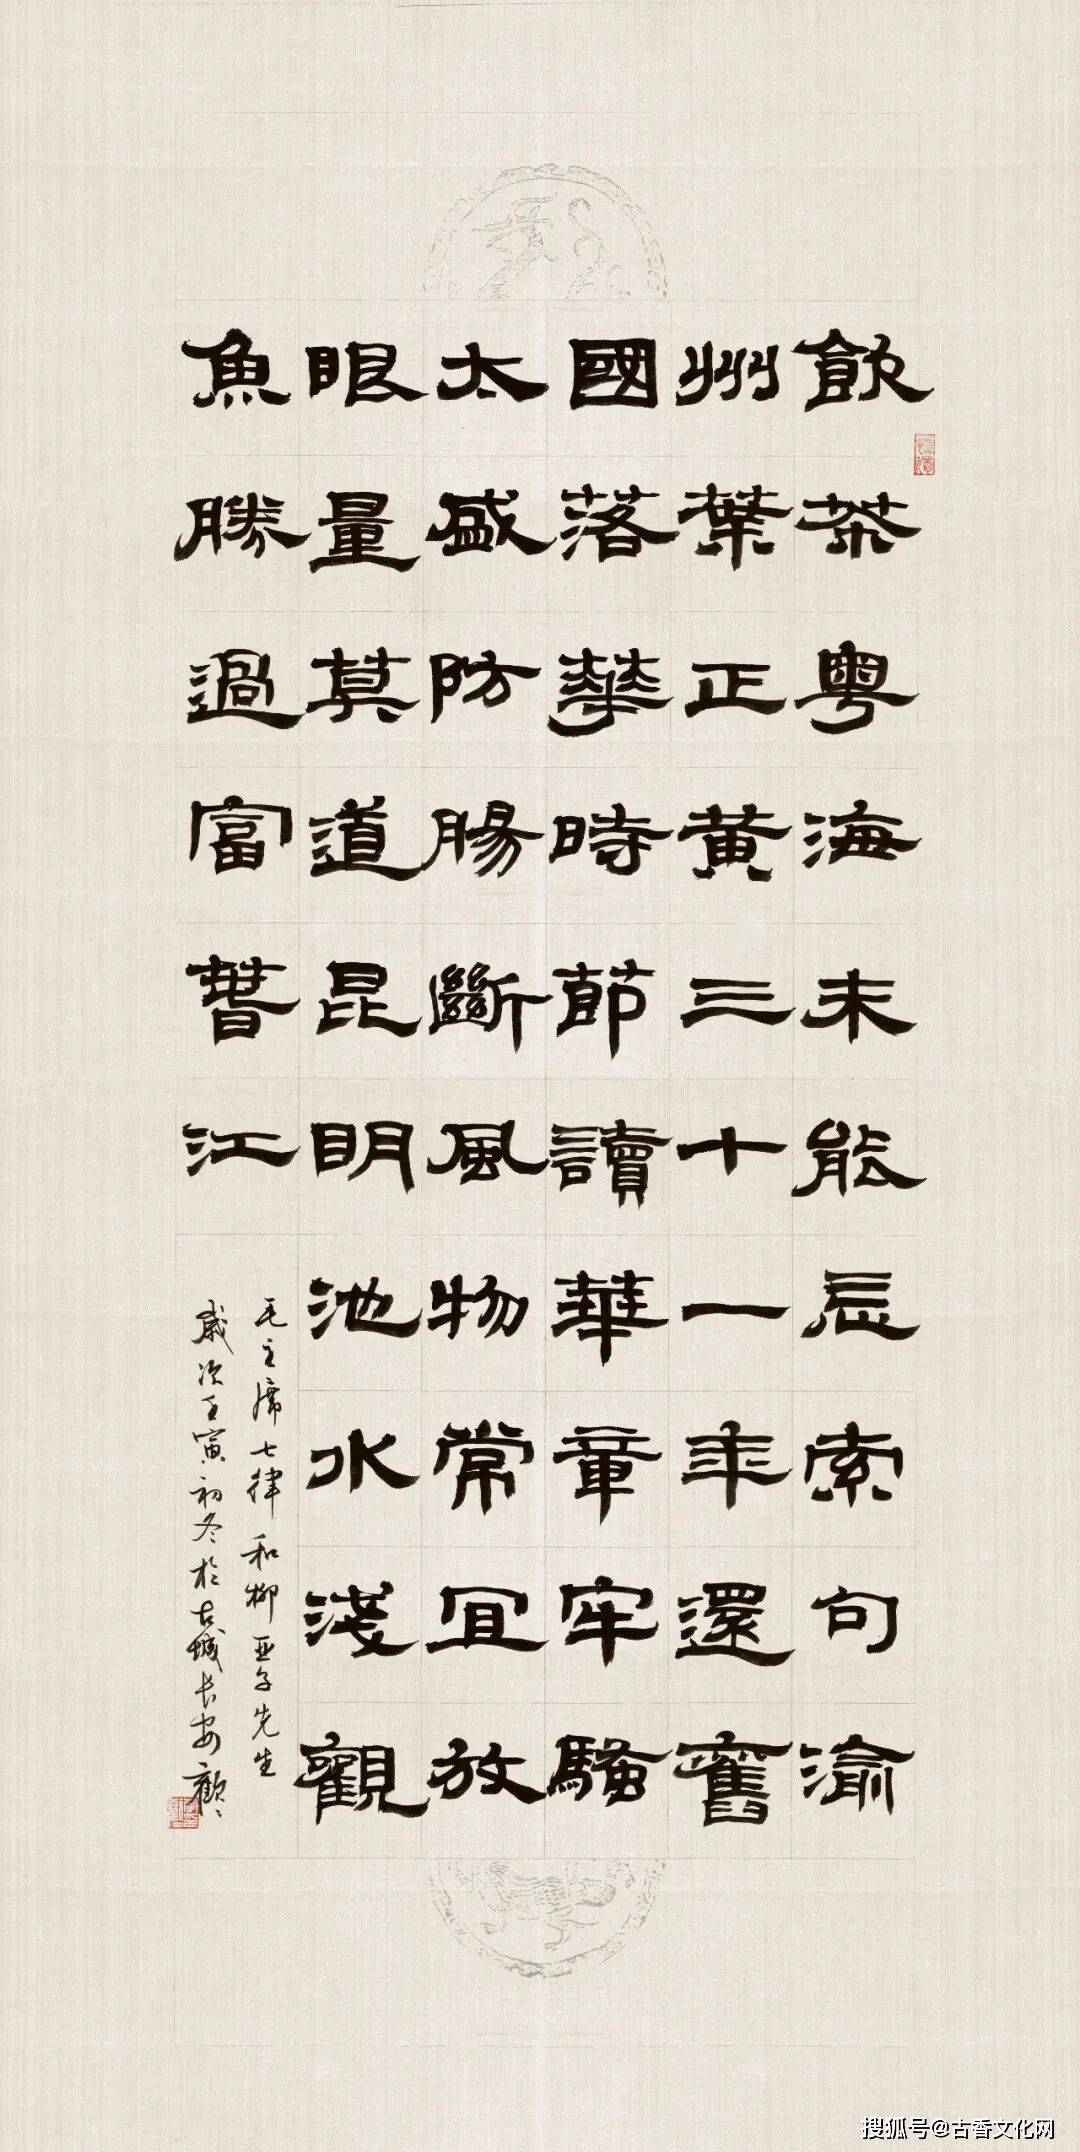 飲茶粤海未能忘索句渝
州葉正黄三十一年還舊
國落華時節讀華章牢騷
太盛防腸斷風物常宜放
眼量莫道昆明池水淺觀
魚勝過富春江
毛主席七律和柳亚子先生
歲次壬寅初冬於古城长安
搜狐号@古香文化网